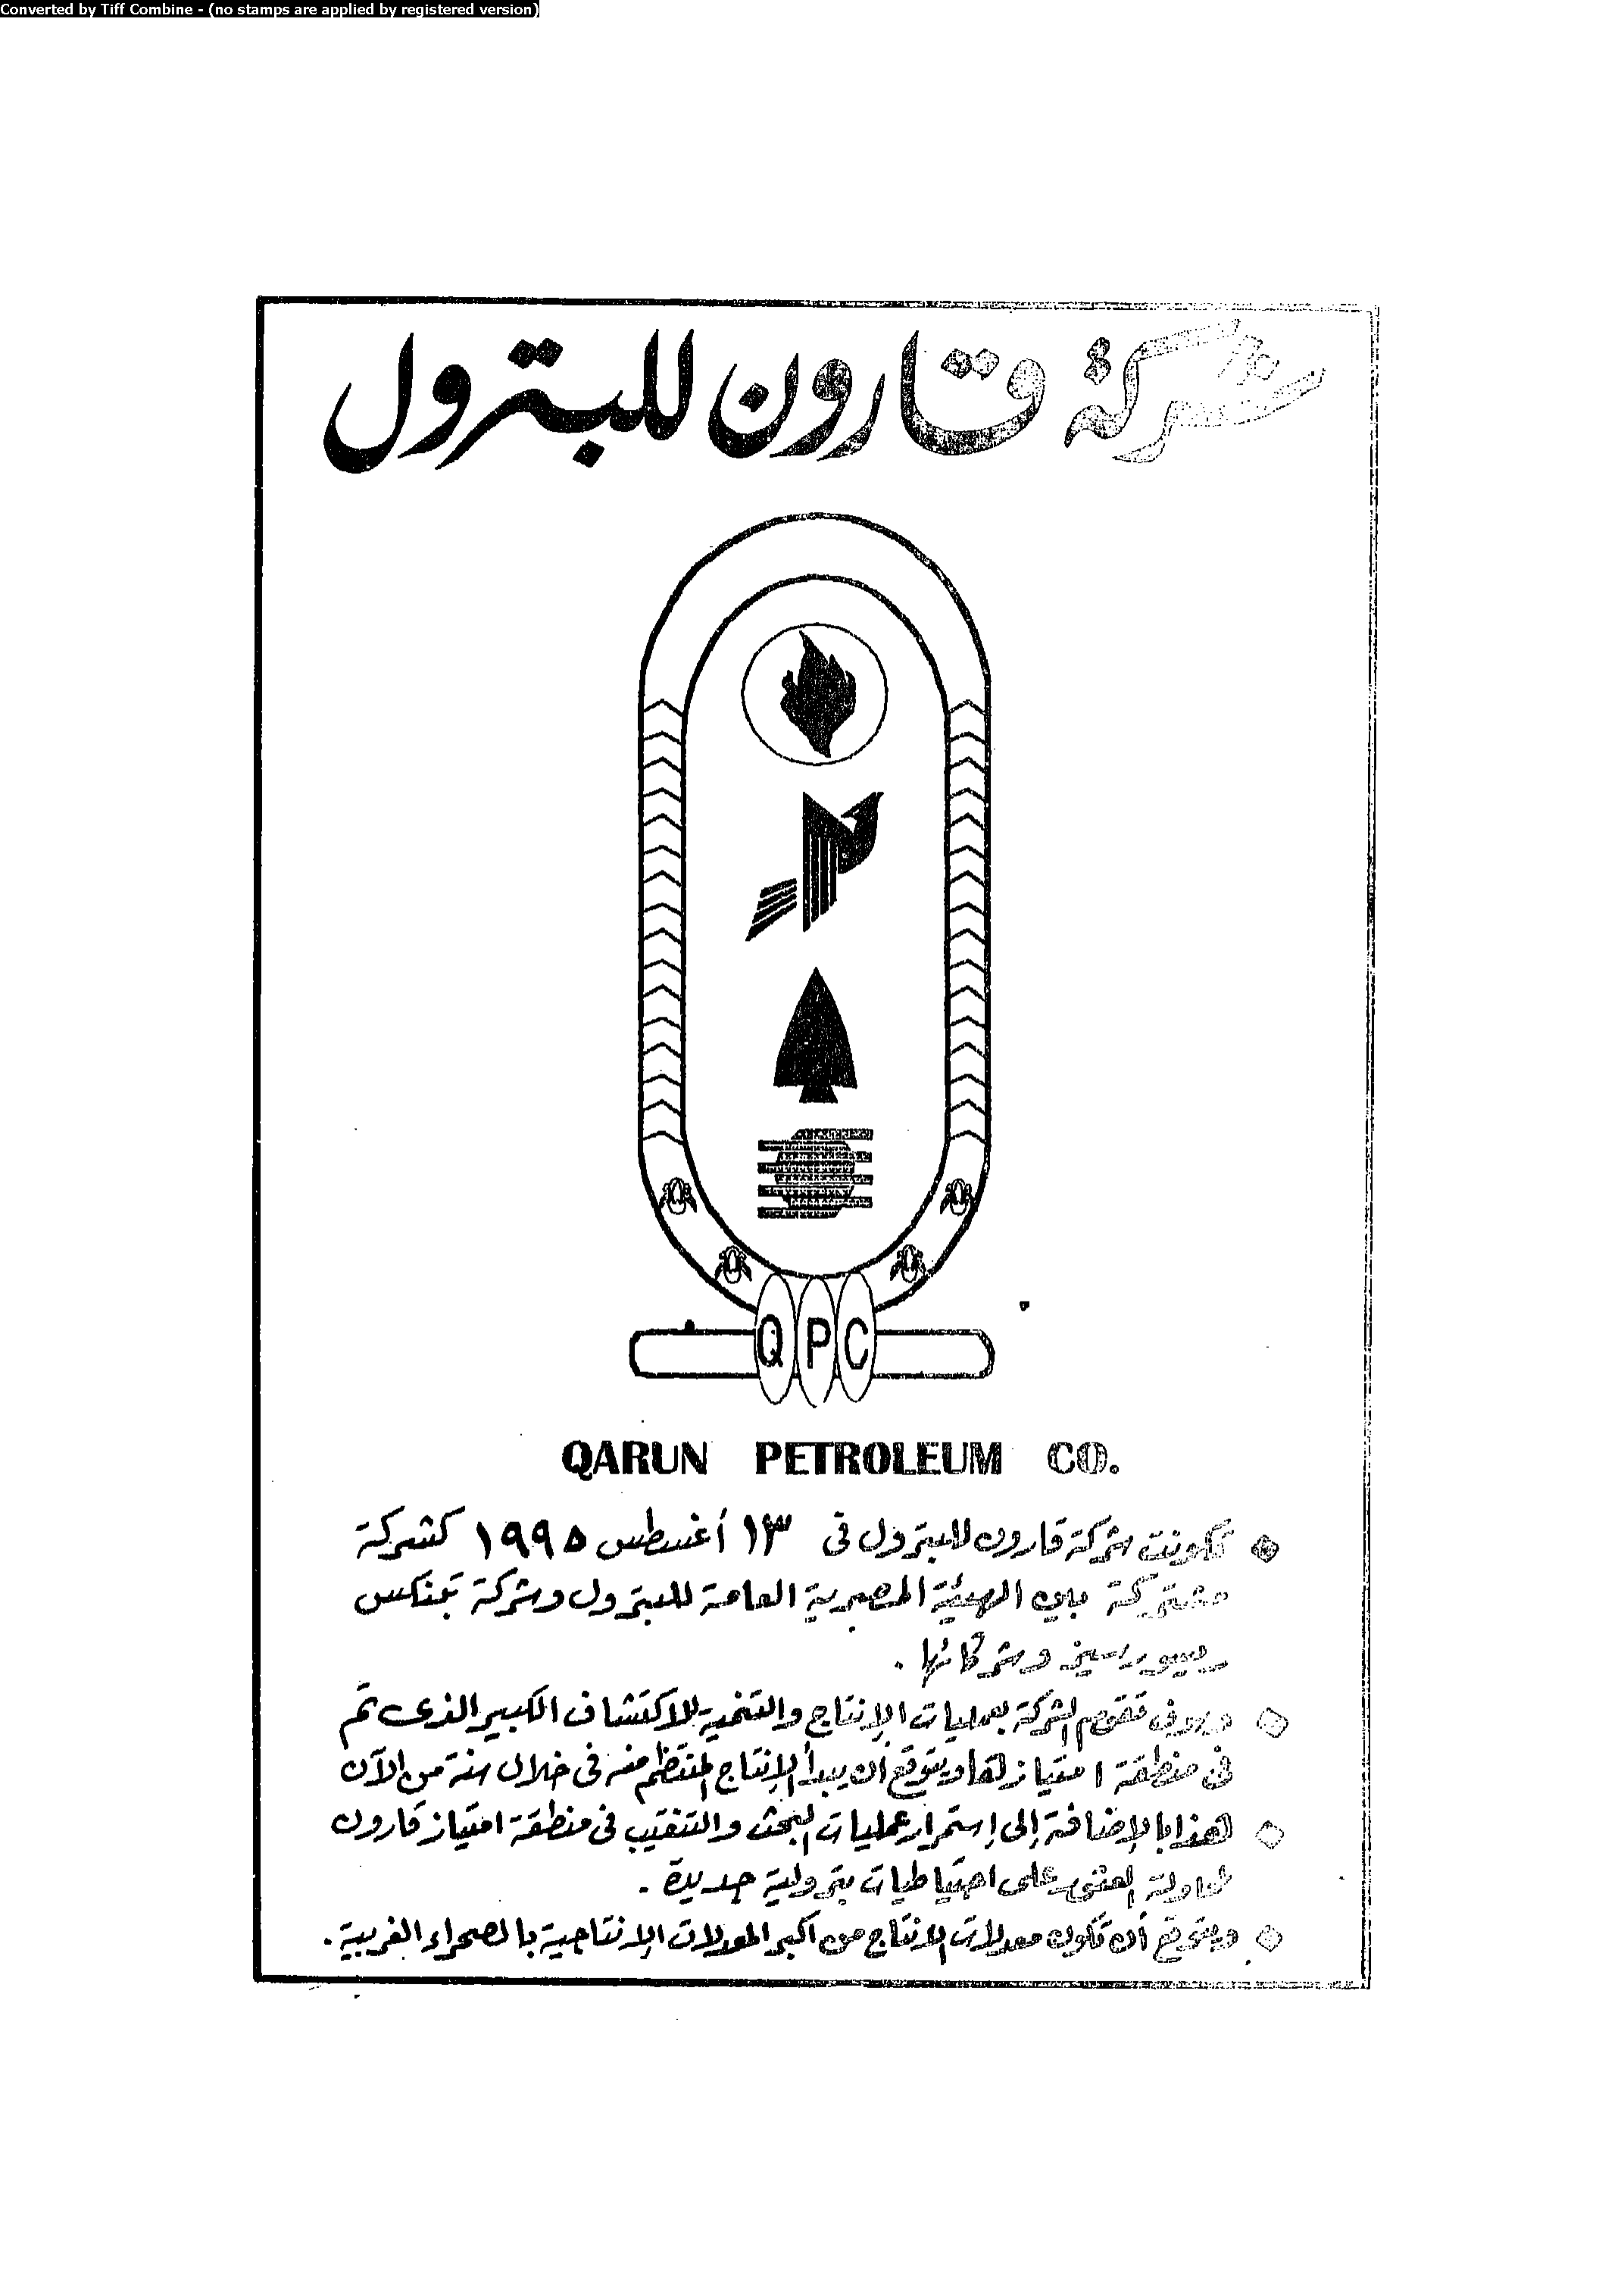 Converted by Tiff Combine - (no stamps are applied by registered version)
شركة قارون للبترول
QPC
QARUN PETROLEUM CO.
تكونت شركة قارون للبترول فى ١٣ أغسطس ١٩٩٥ كشركة
مشتركة بين الهيئة المصرية العامة للبترول وشركة فينكس
ريسورسيز وشركائها .
وسوف تقوم الشركة بعمليات الإنتاج والتنمية للاكتشاف الكبير الذى تم
فى منطقة امتيازها ويتوقع أن يبدأ الإنتاج المنتظم منه فى خلال سنة من الآن
هذا بالإضافة إلى إستمرار عمليات البحث والتنقيب فى منطقة امتياز قارون
لمحاولة العثور على احتياطيات بترولية جديدة .
ويتوقع أن تكون معدلات الإنتاج من أكبر المعدلات الإنتاجية بالصحراء الغربية .